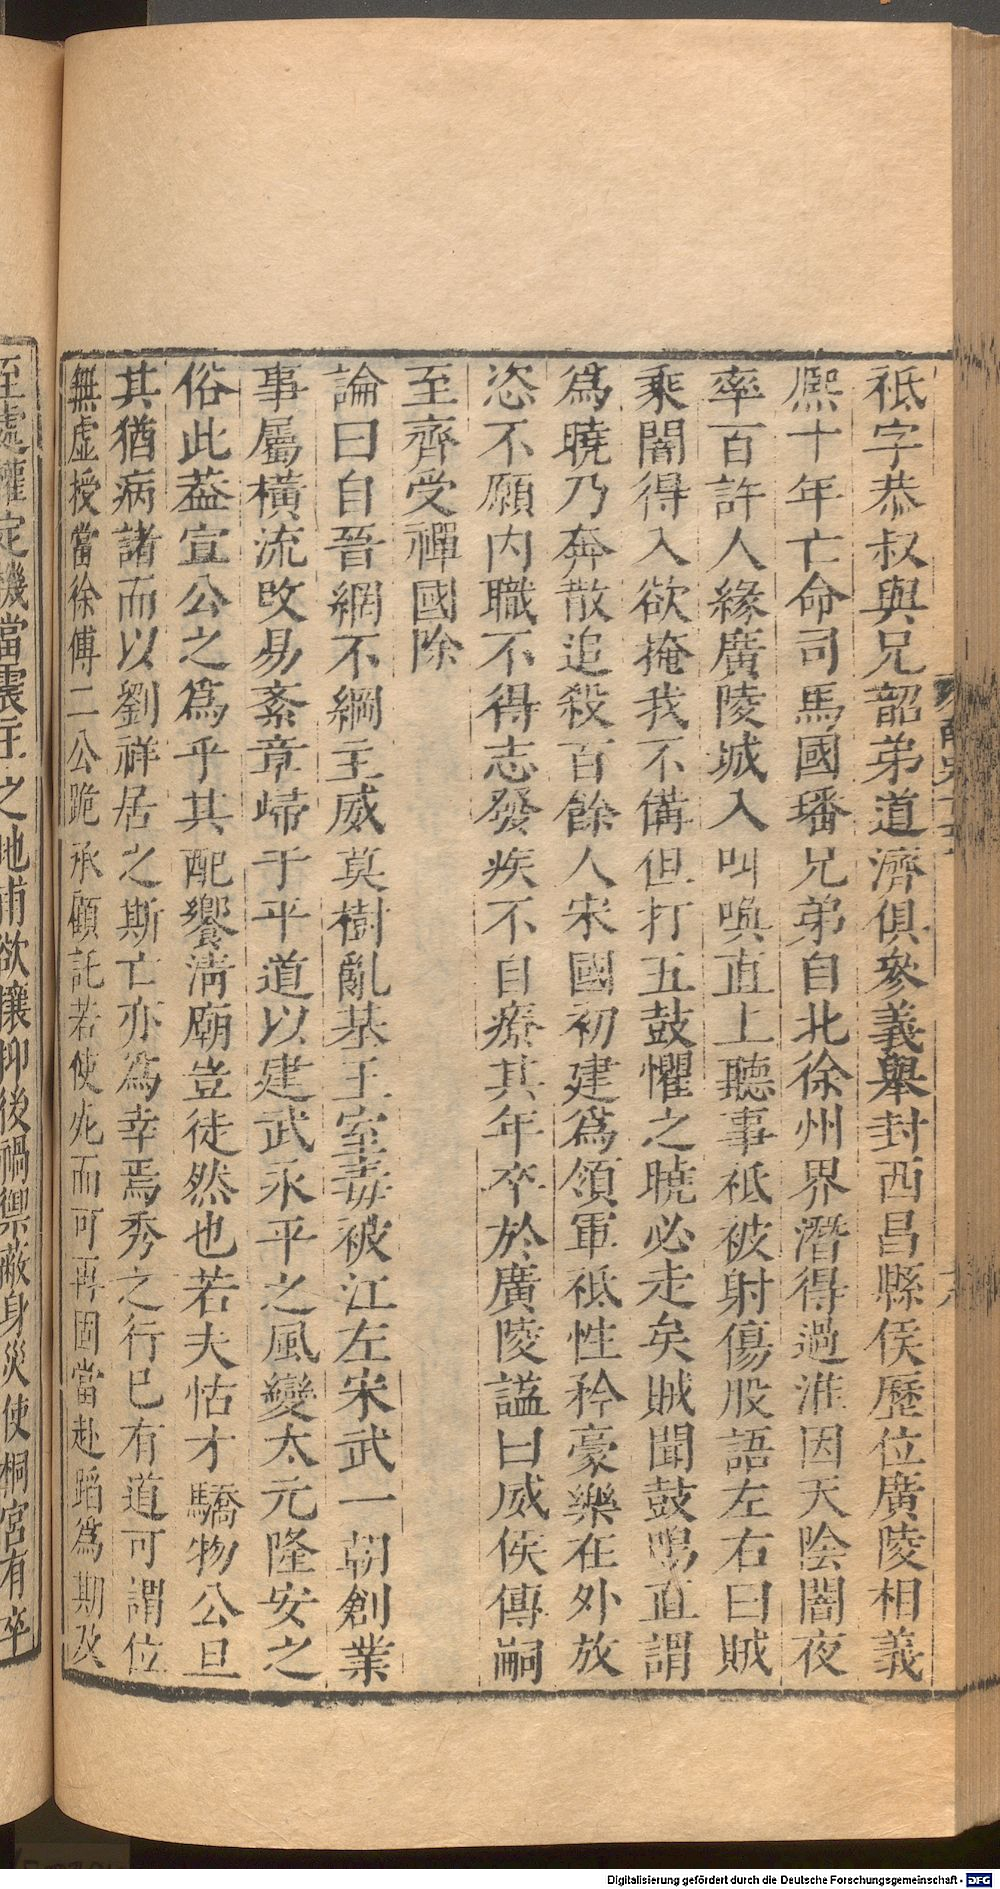 祗字恭叔與兄韶弟道濟俱參義舉封西昌縣侯歷位廣陵相義
熙十年亡命司馬國璠兄弟自北徐州界潛得過淮因天陰闇夜
率百許人緣廣陵城入叫喚直上聽事祗被射傷股語左右曰賊
乘闇得入欲掩我不備但打五鼓懼之曉必走矣賊聞鼓鳴直謂
爲曉乃奔散追殺百餘人宋國初建爲領軍祗性矜豪樂在外放
恣不願内職不得志發疾不自療其年卒於廣陵謚曰威侯傳嗣
至齊受禪國除
論曰自晉網不綱主威莫樹亂基王室毒被江左宋武一朝創業
事屬橫流改易紊章歸于平道以建武永平之風變太元隆安之
俗此葢宣公之爲乎其配饗清廟豈徒然也若夫怙才驕物公旦
其猶病諸而以劉祥居之斯亡亦爲幸焉秀之行已有道可謂位
無虛授當徐傅二公跪承顧託若使死而可再固當赴蹈爲期及
至處權定機當震主之地甫欲攘抑後禍禦蔽身災使桐宮有卒
Digitalisierung gefördert durch die Deutsche Forschungsgemeinschaft - DFG